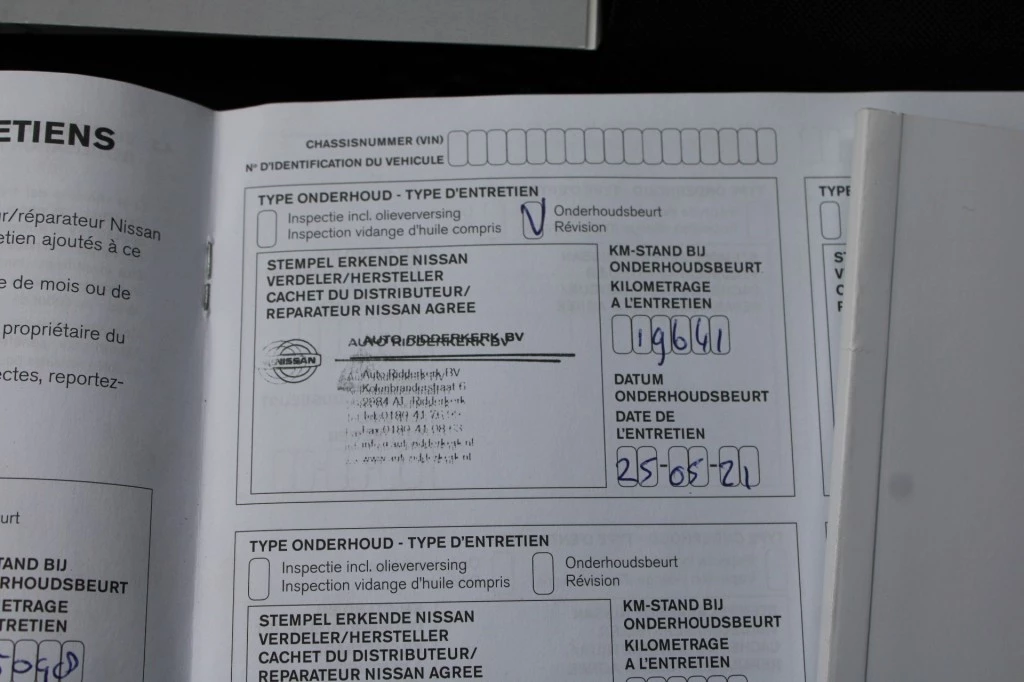 ETIENS
r/réparateur Nissan
etien ajoutés à ce
e de mois ou de
propriétaire du
ectes, reportez-
urt
TAND BIJ
RHOUDSBEURT
METRAGE
TRETIEN
CHASSISNUMMER (VIN)
N° D'IDENTIFICATION DU VEHICULE
TYPE ONDERHOUD - TYPE D'ENTRETIEN
Inspectie incl. olieverversing
Inspection vidange d'huile compris
V Onderhoudsbeurt
Révision
STEMPEL ERKENDE NISSAN
VERDELER/HERSTELLER
CACHET DU DISTRIBUTEUR/
REPARATEUR NISSAN AGREE
NISSAN
AUTO RIDDERKERK BV
Auto Ridderkerk BV
Kolenbranderstraat 6
2984 AT Ridderkerk
KM-STAND BIJ
ONDERHOUDSBEURT
KILOMETRAGE
A L'ENTRETIEN
19641
DATUM
ONDERHOUDSBEURT
DATE DE
L'ENTRETIEN
25-05-21
TYPE ONDERHOUD - TYPE D'ENTRETIEN
Inspectie incl. olieverversing
Inspection vidange d'huile compris
Onderhoudsbeurt
Révision
STEMPEL ERKENDE NISSAN
VERDELER/HERSTELLER
CACHET DU DISTRIBUTEUR/
REPARATEUR NISSAN AGREE
KM-STAND BIJ
ONDERHOUDSBEURT
KILOMETRAGE
A L'ENTRETIEN
TYPE